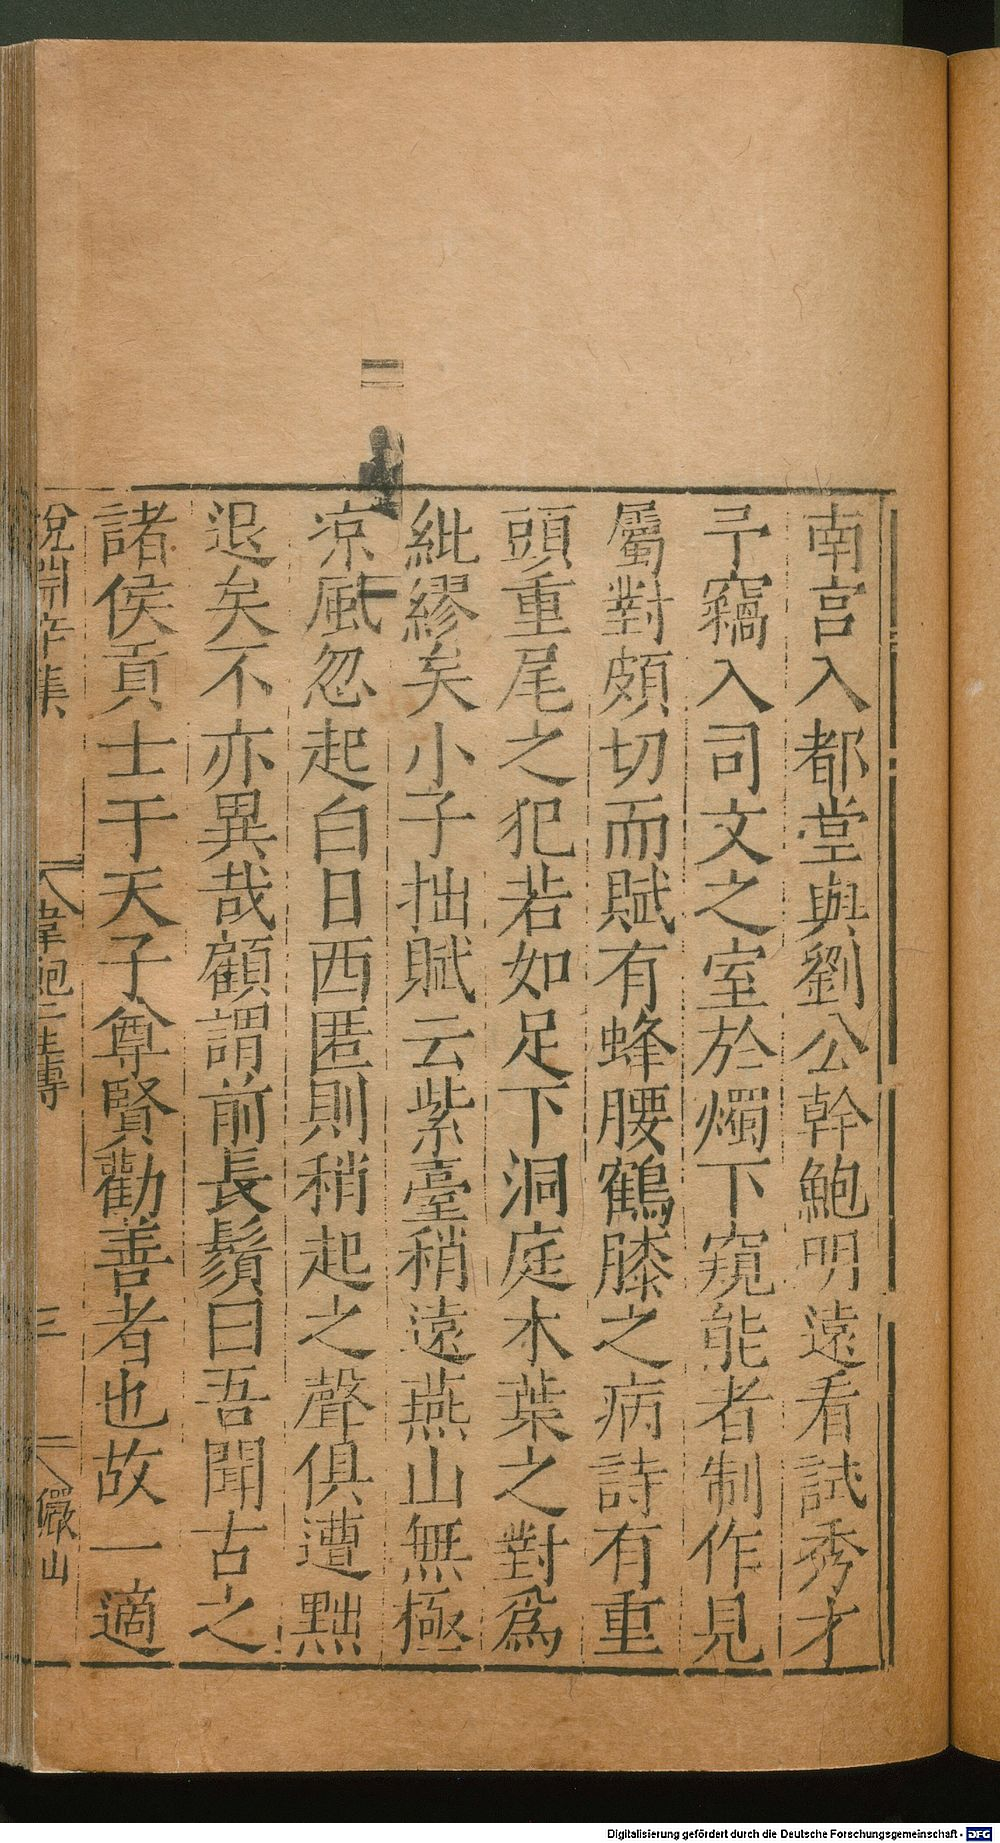 南宫入都堂與劉公幹鮑明遠看試秀才
予竊入司文之室於燭下窺能者制作見
屬對頗切而賦有蜂腰鶴膝之病詩有重
頭重尾之犯若如足下洞庭木葉之對爲
紕繆矣小子拙賦云紫臺稍遠燕山無極
凉風忽起白日西匿則稍起之聲俱遭黜
退矣不亦異哉顧謂前長鬚曰吾聞古之
諸侯貢士于天子尊賢勸善者也故一適
說淵辛集
韋鮑二生傳
三
儼山
Digitalisierung gefördert durch die Deutsche Forschungsgemeinschaft - DFG